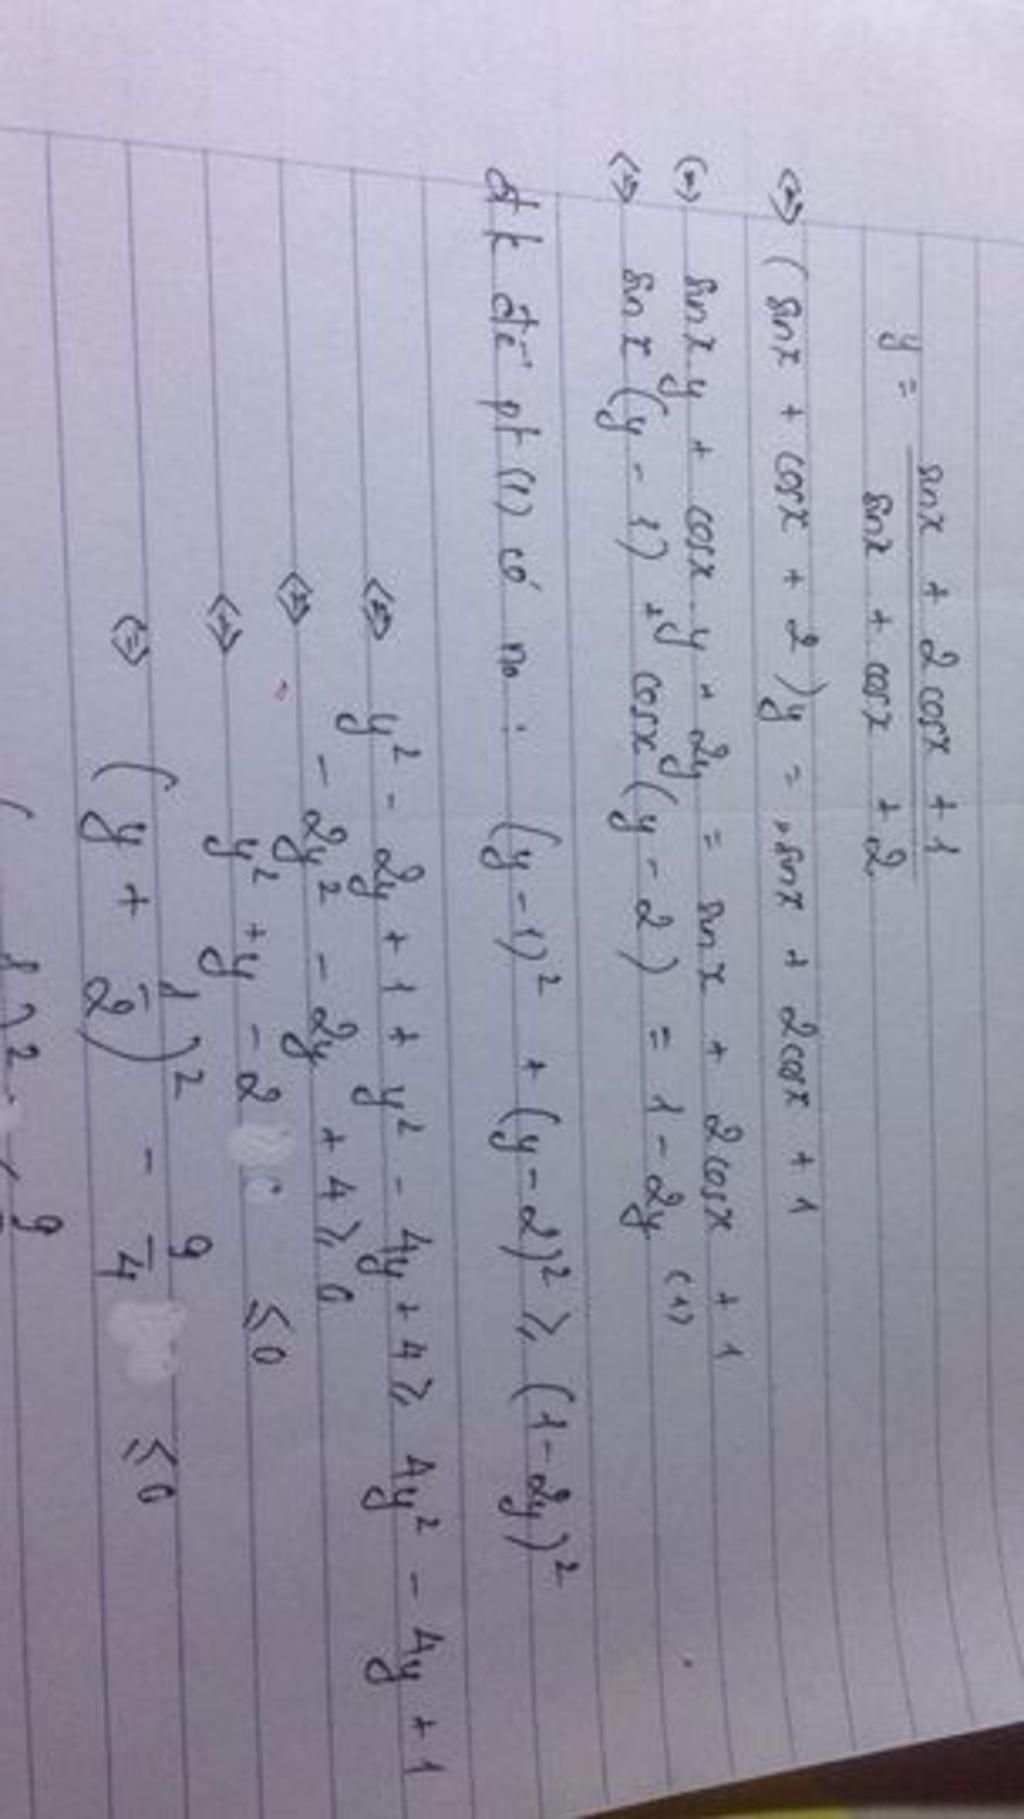 y = sinx + 2cosx + 1 / sinx + cosx + 2
<=> (sinx + cosx + 2)y = sinx + 2cosx + 1
<=> sinx y + cosx.y + 2y = sinx + 2cosx + 1
<=> sinx (y - 1) + cosx (y - 2) = 1 - 2y (1)
đk để pt (1) có no : (y - 1)² + (y - 2)² ≥ (1 - 2y)²
<=> y² - 2y + 1 + y² - 4y + 4 ≥ 4y² - 4y + 1
<=> - 2y² - 2y + 4 ≥ 0
<=> y² + y - 2 ≤ 0
<=> (y + 1/2)² - 9/4 ≤ 0